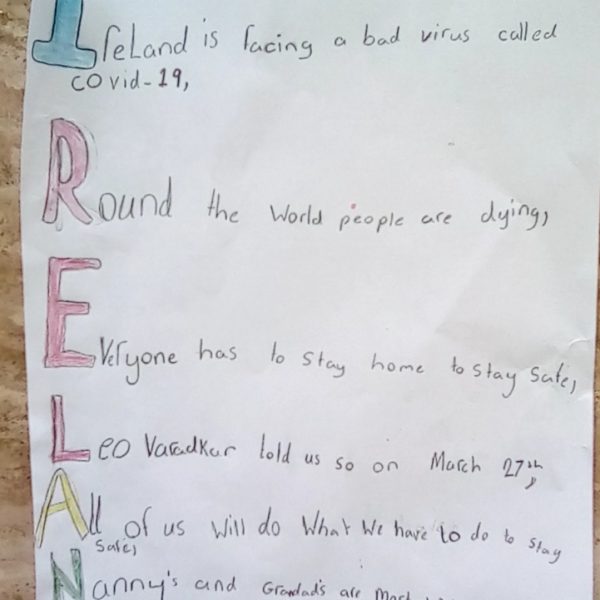 Ireland is facing a bad virus called
covid-19,
Round the World people are dying,
Everyone has to stay home to stay safe,
Leo Varadkar told us so on March 27th,
All of us will do What We have to do to stay
safe,
Nanny's and Grandad's are most